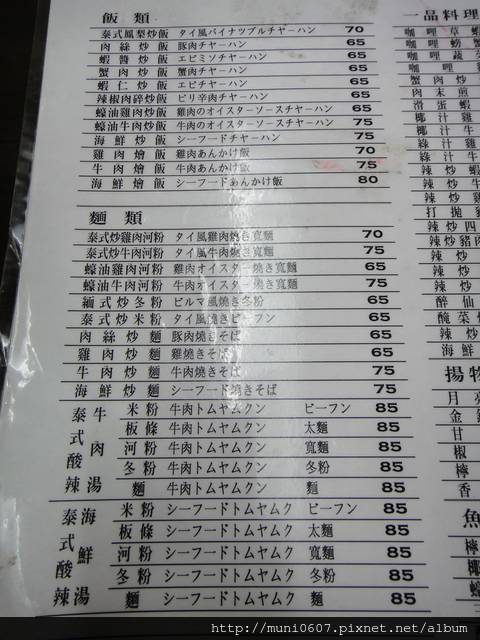 飯類
泰式鳳梨炒飯 タイ風パイナップルチャーハン 70
肉絲炒飯 豚肉チャーハン 65
蝦醬炒飯 エビミソチャーハン 65
蟹肉炒飯 蟹肉チャーハン 65
蝦仁炒飯 エビチャーハン 65
辣椒肉碎炒飯 ピリ辛肉チャーハン 65
蠔油雞肉炒飯 雞肉のオイスターソースチャーハン 65
蠔油牛肉炒飯 牛肉のオイスターソースチャーハン 75
海鮮炒飯 シーフードチャーハン 75
雞肉燴飯 雞肉あんかけ飯 70
牛肉燴飯 牛肉あんかけ飯 75
海鮮燴飯 シーフードあんかけ飯 80
麵類
泰式炒雞肉河粉 タイ風雞肉焼き寬麵 70
泰式炒牛肉河粉 タイ風牛肉焼き寬麵 75
蠔油雞肉河粉 雞肉オイスター焼き寬麵 65
蠔油牛肉河粉 牛肉オイスター焼き寬麵 75
緬式炒冬粉 ビルマ風焼き冬粉 65
泰式炒米粉 タイ風焼きビーフン 65
肉絲炒麵 豚肉焼きそば 65
雞肉炒麵 雞焼きそば 65
牛肉炒麵 牛肉焼きそば 75
海鮮炒麵 シーフード焼きそば 75
泰式酸辣牛肉湯
米粉 牛肉トムヤムクン ビーフン 85
板條 牛肉トムヤムクン 太麵 85
河粉 牛肉トムヤムクン 寬麵 85
冬粉 牛肉トムヤムクン 冬粉 85
麵 牛肉トムヤムクン 麵 85
泰式酸辣海鮮湯
米粉 シーフードトムヤムク ビーフン 85
板條 シーフードトムヤムク 太麵 85
河粉 シーフードトムヤムク 寬麵 85
冬粉 シーフードトムヤムク 冬粉 85
麵 シーフードトムヤムク 麵 85
一品料理
咖哩草蝦
咖哩螃蟹
咖哩蔬
咖哩
蟹肉炒
肉末煎
滑蛋蝦
椰汁雞
椰汁牛
綠汁雞
綠汁牛
辣炒蝦
辣炒牛
辣炒
打拋
辣炒四
辣炒豬肉
辣炒
辣炒
醉仙
醃菜
辣炒
海鮮
揚物
月
金
甘
椒
檸
香
魚
檸
椰
http://muni0607.pixnet.net/album